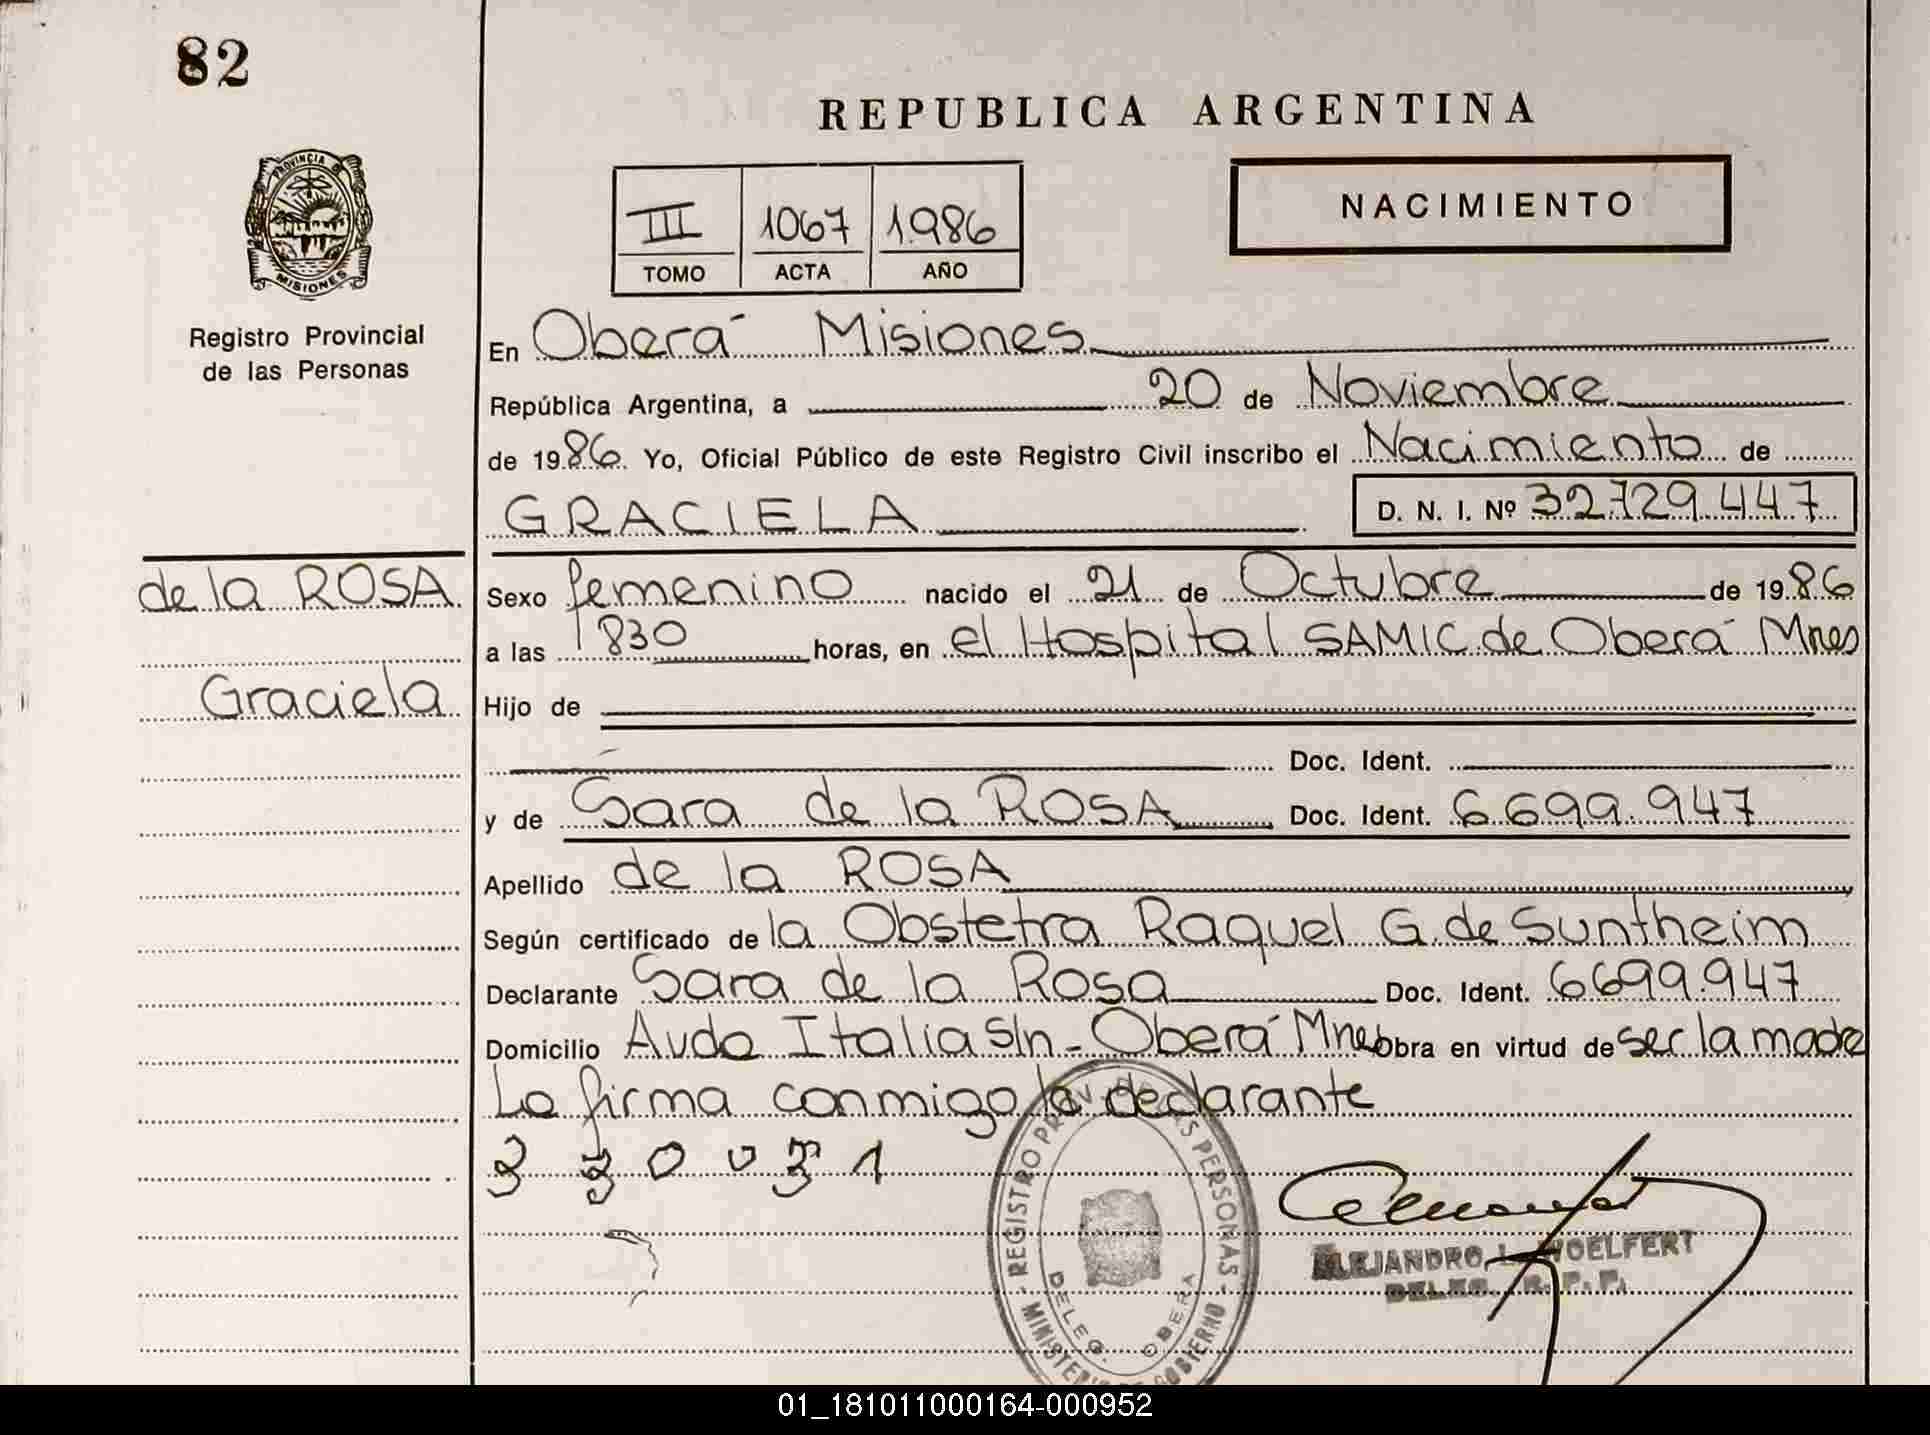 82
REPUBLICA ARGENTINA
PROVINCIA DE
MISIONES
Registro Provincial
de las Personas
III 1067 1.986
TOMO ACTA AÑO
NACIMIENTO
En Oberá Misiones
República Argentina, a 20 de Noviembre
de 1986 Yo, Oficial Público de este Registro Civil inscribo el Nacimiento de
GRACIELA D. N. I. Nº 32.729.447
de la ROSA
Graciela
Sexo femenino nacido el 21 de Octubre de 1986
a las 1830 horas, en el Hospital SAMIC de Oberá Mnes
Hijo de
Doc. Ident.
y de Sara de la ROSA Doc. Ident. 6.699.947
Apellido de la ROSA
Según certificado de la Obstetra Raquel G. de Suntheim
Declarante Sara de la Rosa Doc. Ident. 6.699.947
Domicilio Avda Italia S/n - Oberá Mnes Obra en virtud de ser la madre
La firma conmigo la declarante
REGISTRO PROV. DE LAS PERSONAS
DELEG. OBERA
MINISTERIO DE GOBIERNO
ALEJANDRO L. WOELFERT
DELEG. R. P. P.
01_181011000164-000952